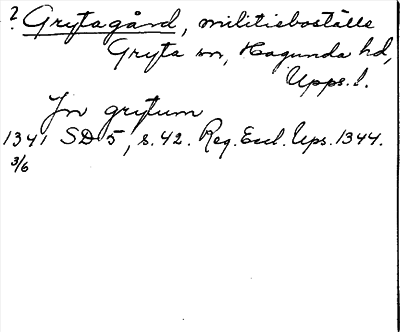 ? Grytagård, militieboställe
Gryta sn, Hagunda hd,
Upps. l.
Jn grytum
1341 SD 5, s. 42. Reg. Eccl. Ups. 1344.
3/6